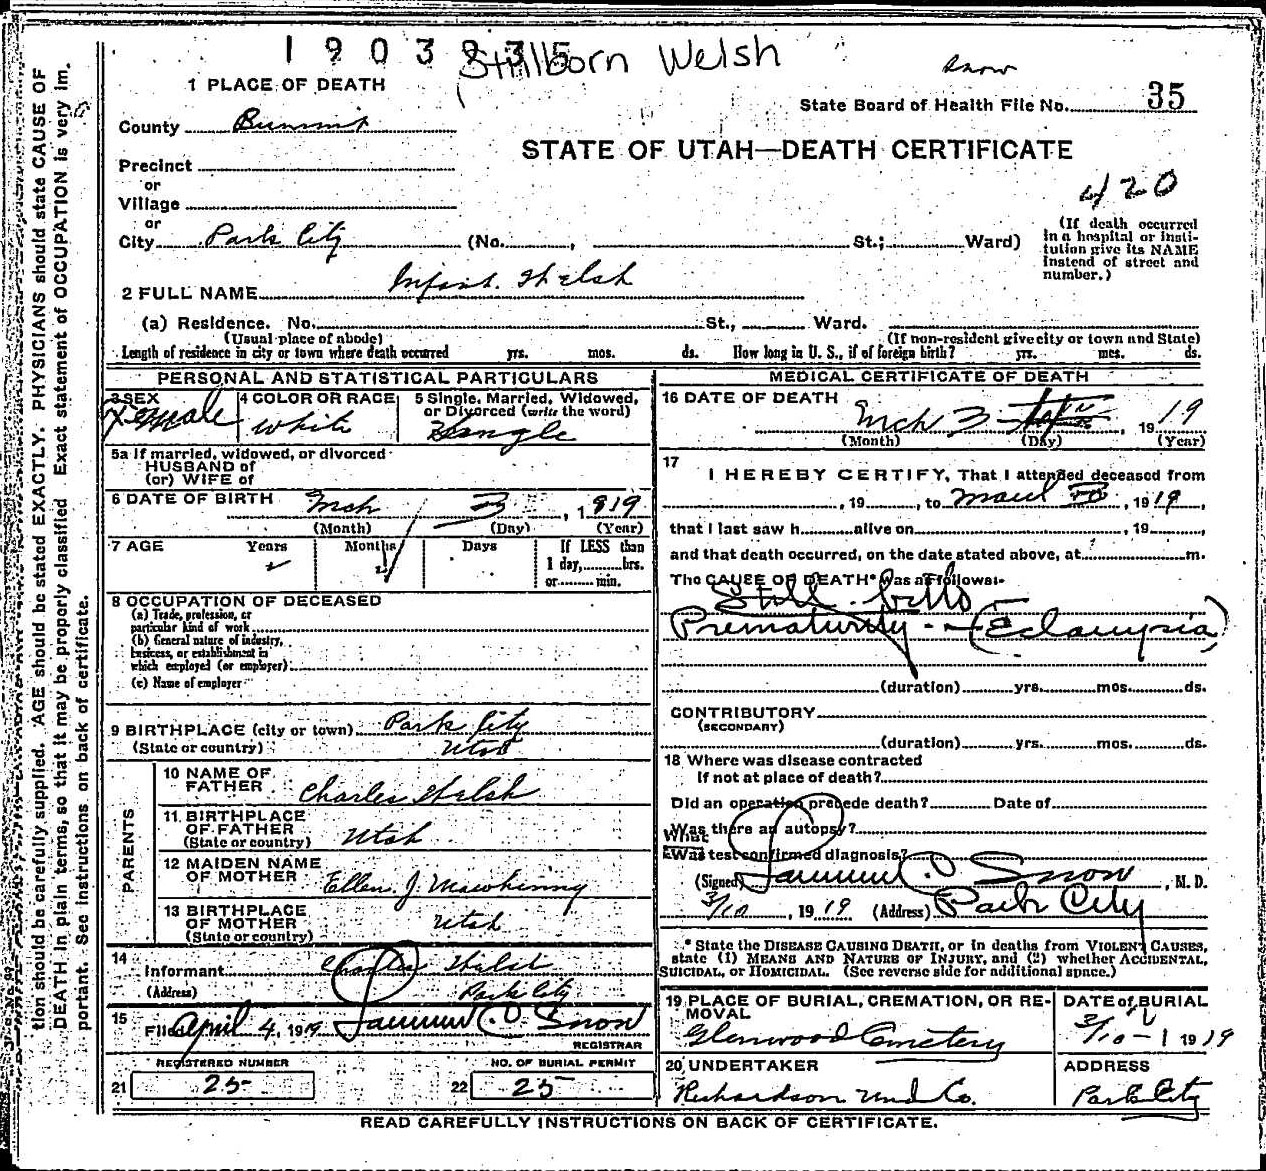 1903935
Stillborn Welsh
Snow
1 PLACE OF DEATH
State Board of Health File No. 35
County Summit
STATE OF UTAH—DEATH CERTIFICATE
Precinct
or
420
Village
or
City Park City (No. , St.; Ward)
(If death occurred
in a hospital or insti-
tution give its NAME
instead of street and
number.)
2 FULL NAME Infant. Welsh
(a) Residence. No. St., Ward.
(Usual place of abode) (If non-resident give city or town and State)
Length of residence in city or town where death occurred yrs. mos. ds. How long in U. S., if of foreign birth? yrs. mos. ds.
PERSONAL AND STATISTICAL PARTICULARS
3 SEX Female
4 COLOR OR RACE White
5 Single, Married, Widowed,
or Divorced (write the word)
Single
5a If married, widowed, or divorced
HUSBAND of
(or) WIFE of
6 DATE OF BIRTH Mch 3, 1919
(Month) (Day) (Year)
7 AGE Years Months Days If LESS than
1 day, hrs.
or min.
8 OCCUPATION OF DECEASED
(a) Trade, profession, or
particular kind of work
(b) General nature of industry,
business, or establishment in
which employed (or employer)
(c) Name of employer
9 BIRTHPLACE (city or town) Park City
(State or country) Utah
PARENTS
10 NAME OF
FATHER Charles Welsh
11 BIRTHPLACE
OF FATHER Utah
(State or country)
12 MAIDEN NAME
OF MOTHER Ellen J. Mawhinny
13 BIRTHPLACE
OF MOTHER Utah
(State or country)
14
Informant Charles Welsh
(Address) Park City
15
Filed April 4, 1919 Snow
REGISTRAR
REGISTERED NUMBER
21 25
NO. OF BURIAL PERMIT
22 25
MEDICAL CERTIFICATE OF DEATH
16 DATE OF DEATH
Mch 3, 1919
(Month) (Day) (Year)
17
I HEREBY CERTIFY, That I attended deceased from
, 19 , to , 1919,
that I last saw h alive on , 19
and that death occurred, on the date stated above, at m.
The CAUSE OF DEATH* was as follows:
Still birth -
Prematurity - (Eclampsia)
(duration) yrs. mos. ds.
CONTRIBUTORY
(SECONDARY)
(duration) yrs. mos. ds.
18 Where was disease contracted
If not at place of death?
Did an operation precede death? Date of
Was there an autopsy?
What
Was test confirmed diagnosis?
(Signed) Snow, M. D.
3/10, 1919 (Address) Park City
* State the DISEASE CAUSING DEATH, or in deaths from VIOLENT CAUSES,
state (1) MEANS AND NATURE OF INJURY, and (2) whether ACCIDENTAL,
SUICIDAL, or HOMICIDAL. (See reverse side for additional space.)
19 PLACE OF BURIAL, CREMATION, OR RE-
MOVAL
Glenwood Cemetery
DATE of BURIAL
3/10 - 1919
20 UNDERTAKER
Richardson Und Co.
ADDRESS
Park City
READ CAREFULLY INSTRUCTIONS ON BACK OF CERTIFICATE.
tion should be carefully supplied. AGE should be stated EXACTLY. PHYSICIANS should state CAUSE OF
DEATH in plain terms, so that it may be properly classified. Exact statement of OCCUPATION is very im-
portant. See instructions on back of certificate.